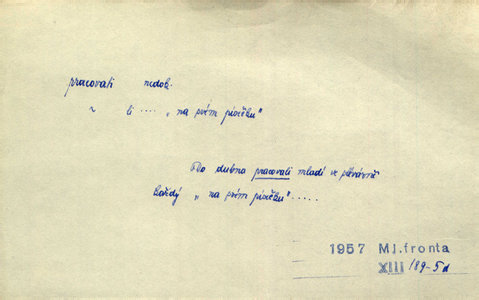 pracovati nedok.
~ li .... „na svém písečku"
Do dubna pracovali mladí ve
každý „na svém písečku".....
1957 Ml.fronta
XIII /89-5d